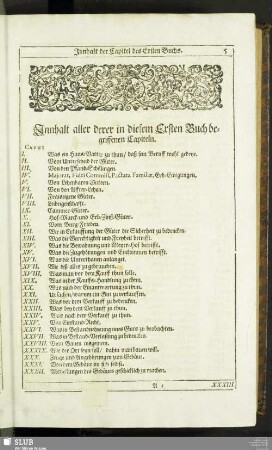 Innhalt der Capitel des Ersten Buchs. 5
Innhalt aller derer in diesem Ersten Buch begriffenen Capiteln.
I. Was ein Haus-Vatter zu thun / daß sein Beruff wohl gedeye.
II. Vom Unterscheid der Güter.
III. Von den Pfand-Schillingen.
IV. Majorat, Fidei Commiss, Pactata Familiae, Erb-Einigungen.
V. Von Lehenbaren Gütern.
VI. Von den Affter-Lehen.
VII. Freyeigene Güter.
VIII. Leibgedinge.
IX. Cammer-Güter.
X. Hof-Marck und Erb-Zinß-Güter.
XI. Vom Burg-Frieden.
XII. Wie in Erkauffung der Güter die Sicherheit zu bedencken.
XIII. Was die Gerechtigkeit und Freyheit betrifft.
XIV. Was die Bewohnung und Mayer-Hof betrifft.
XV. Was die Zugehörungen und Einkommen betrifft.
XVI. Was die Unterthanen anlangt.
XVII. Wie diß alles zu
XVIII. Was man vor dem Kauff thun solle.
XIX. Was in der Kauffs-Handlung zu thun.
XX. Was nach der Einantwortung zu thun.
XXI. Ursachen / warum ein Gut zu verkauffen.
XXII. Was vor dem Verkauff zu bedencken.
XXIII. Was bey dem Verkauff zu thun.
XXIV. Was nach dem Verkauff zu thun.
XXV. Vom Einstand-Recht.
XXVI. Was in Bestandnehmung eines Guts zu beobachten.
XXVII. Was in Bestand-Verlassung zu bedencken.
XXVIII. Vom Bauen insgemein.
XXIX. Wie der Ort seyn soll / dahin man bauen will.
XXX. Zeuge und Angehörungen zum Gebäue.
XXXI. Von dem Gebäue an sich selbst.
XXXII. Abtheilungen des Gebäues geschicklich zu machen.
XXXIII
SLUB